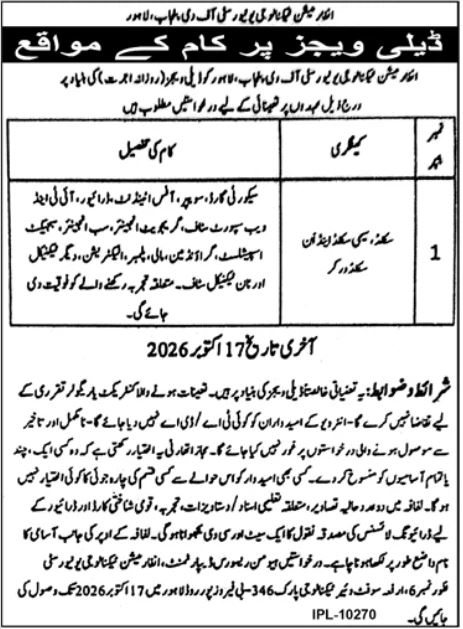 انفارمیشن ٹیکنالوجی یونیورسٹی آف دی پنجاب، لاہور
ڈیلی ویجز پر کام کے مواقع
انفارمیشن ٹیکنالوجی یونیورسٹی آف دی پنجاب، لاہور کو ڈیلی ویجز (روزانہ اجرت) کی بنیاد پر
درج ذیل عہدوں پر تعیناتی کے لیے درخواستیں مطلوب ہیں:
نمبر شمار
کیٹگری
کام کی تفصیل
1
سکلڈ، سیمی سکلڈ اینڈ ان
سکلڈ ورکر
سیکورٹی گارڈ، سویپر، آفس اٹینڈنٹ، ڈرائیور، آئی ٹی اینڈ
ویب سپورٹ سٹاف، گریجویٹ انجینئر، سب انجینئر، سبجیکٹ
اسپیشلسٹ، گراؤنڈ مین، مالی، پلمبر، الیکٹریشن، دیگر ٹیکنیکل
اور نان ٹیکنیکل سٹاف۔ متعلقہ تجربہ رکھنے والے کو فوقیت دی
جائے گی۔
آخری تاریخ 17 اکتوبر 2026
شرائط و ضوابط: یہ تعنیاتی خالصتاً ڈیلی ویجز کی بنیاد پر ہیں۔ تعینات ہونے والا کنٹریکٹ یا ریگولر تقرری کے لیے
تقاضا نہیں کرے گا۔ انٹرویو کے امیدواران کو کوئی ٹی اے / ڈی اے نہیں دیا جائے گا۔ نامکمل اور تاخیر
سے موصول ہونے والی درخواستوں پر غور نہیں کیا جائے گا۔ مجاز اتھارٹی یہ اختیار رکھتی ہے کہ وہ کسی ایک، چند
یا تمام آسامیوں کو منسوخ کر دے۔ کسی بھی امیدوار کو اس حوالے سے کسی قسم کی چارہ جوئی کا کوئی اختیار نہیں
ہوگا۔ لفافہ میں دو عدد حالیہ تصاویر، متعلقہ تعلیمی اسناد / دستاویزات، تجربہ، قومی شناختی کارڈ اور ڈرائیور کے
لیے ڈرائیونگ لائسنس کی مصدقہ نقول کا ایک سیٹ اور سی وی بھجوانا ہوگی۔ لفافہ کے اوپر کی جانب آسامی کا
نام واضح طور پر لکھا ہونا چاہیے۔ درخواستیں ہیومن ریسورس ڈیپارٹمنٹ، انفارمیشن ٹیکنالوجی یونیورسٹی
فلور نمبر 6، ارفع سوفٹ وئیر ٹیکنالوجی پارک 346-بی فیروز پور روڈ لاہور میں 17 اکتوبر 2026 تک وصول کی
جائیں گی۔
IPL-10270